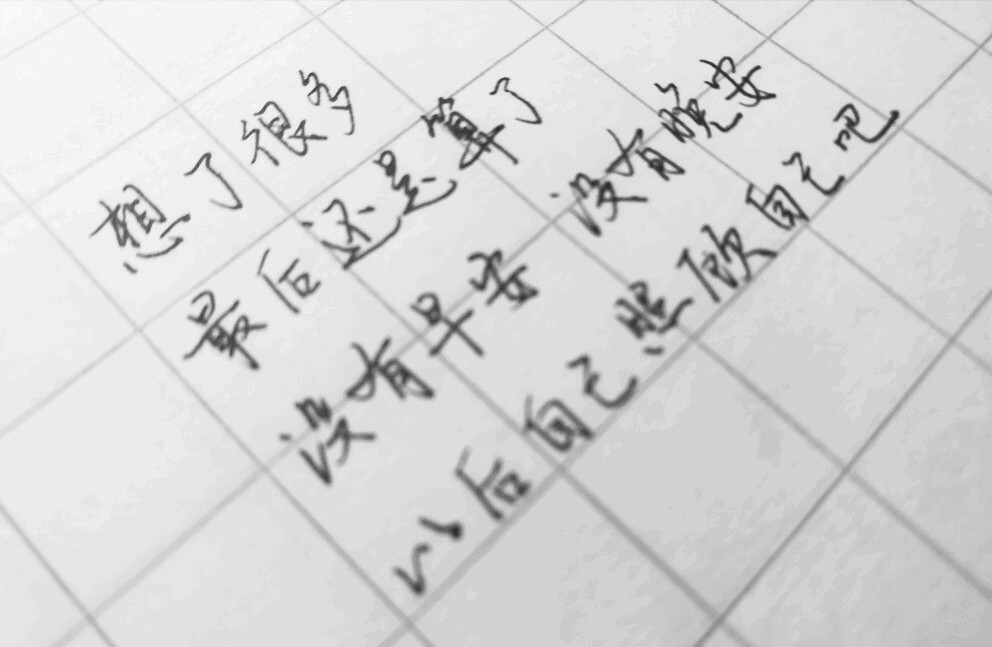 想了很多
最后还是算了
没有早安 没有晚安
以后自己照顾自己吧